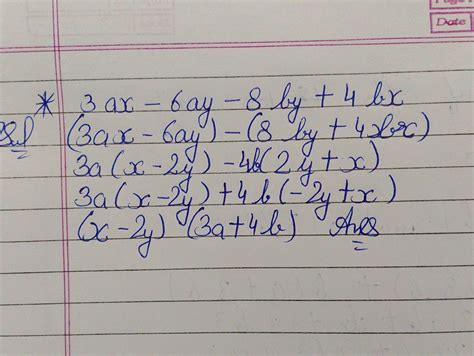 Date
* 3ax - 6ay - 8by + 4bx
Sol (3ax - 6ay) - (8by + 4bx)
3a(x - 2y) - 4b(2y + x)
3a(x - 2y) + 4b(-2y + x)
(x - 2y) (3a + 4b) Ans